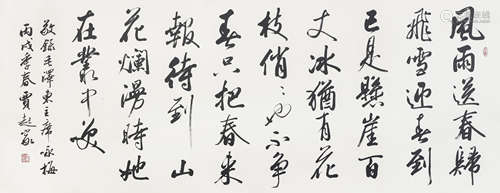 風雨送春歸
飛雪迎春到
已是懸崖百
丈冰猶有花
枝俏〻也不争
春只把春来
報待到山
花爛漫時她
在叢中笑
敬録毛澤東主席咏梅
丙戌季春賈起家